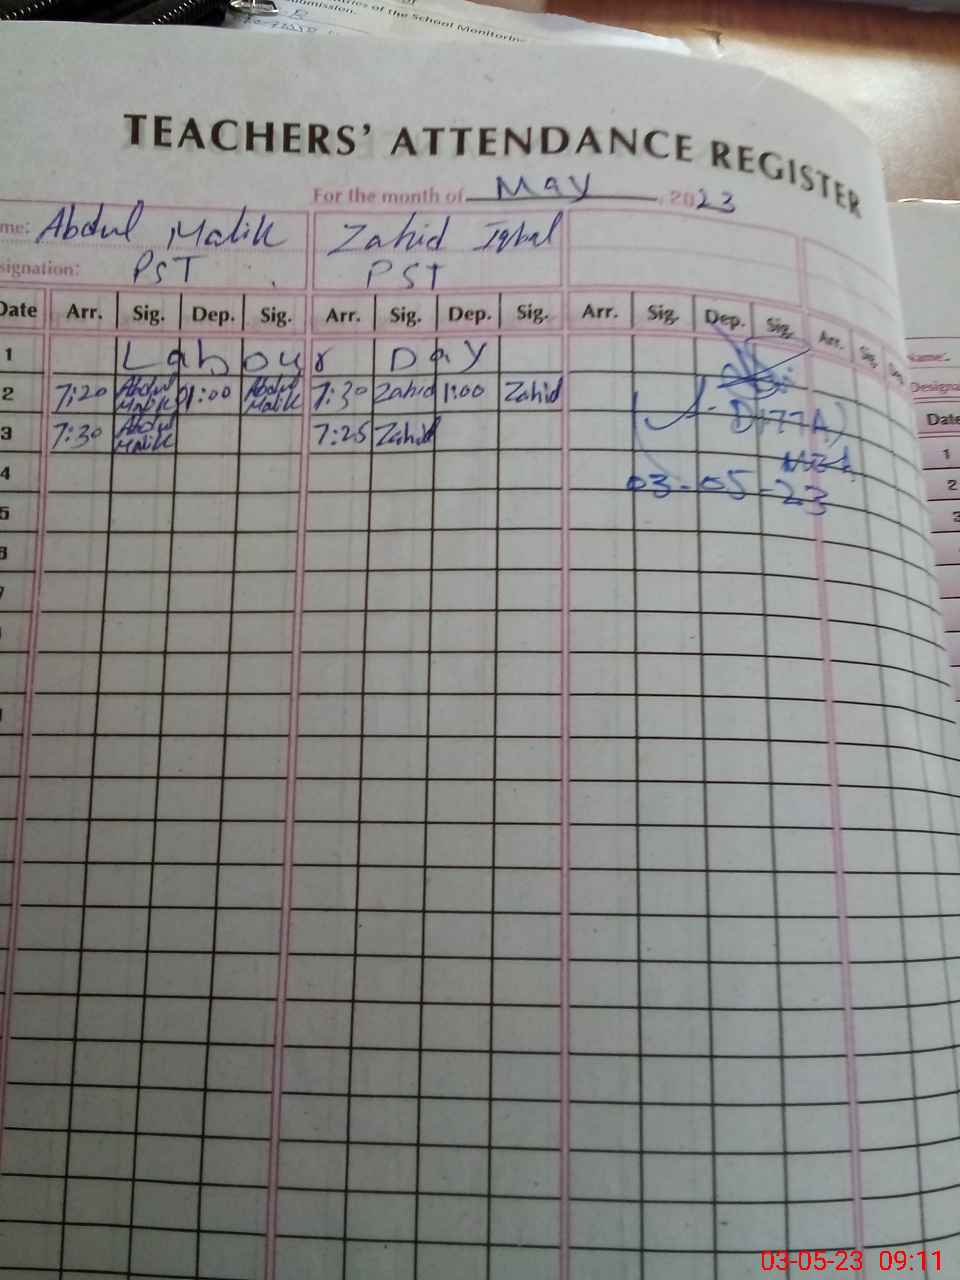 ries of the School Monitorin
mission.
TEACHERS' ATTENDANCE REGISTER
For the month of May, 2023
me: Abdul Malik Zahid Iqbal
signation: PST PST
Date Arr. Sig. Dep. Sig. Arr. Sig. Dep. Sig. Arr. Sig. Dep. Sig. Arr. Sig. Dep.
1 Labour Day
2 7:20 Abdul Malik 01:00 Abdul Malik 7:30 Zahid 1:00 Zahid
3 7:30 Abdul Malik 7:25 Zahid
4
03-05-23
5
6
7
Name:
Designa
Date
1
2
3
03-05-23 09:11